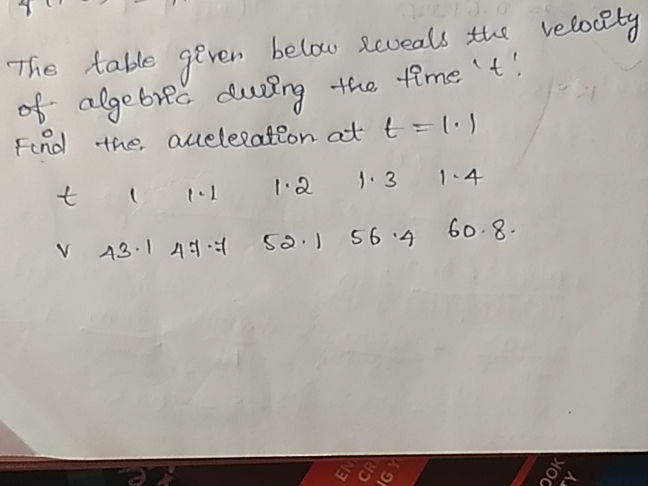 The table given below reveals the velocity
of algebric during the time 't'.
Find the acceleration at t = 1.1
t 1 1.1 1.2 1.3 1.4
v 43.1 47.7 52.1 56.4 60.8.
EN
CR
NG Y
OOK
TY